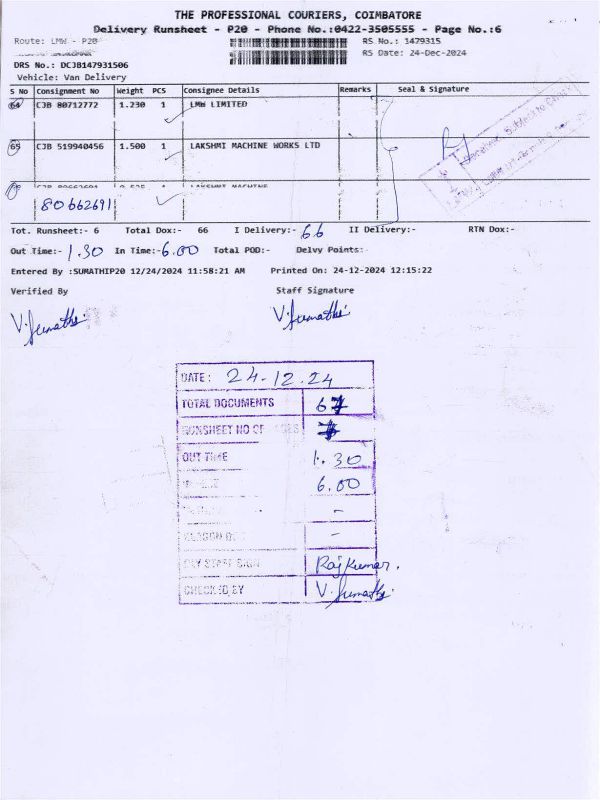 THE PROFESSIONAL COURIERS, COIMBATORE
Delivery Runsheet - P20 - Phone No.:0422-3505555 - Page No.:6
Route: LMW - P20 RS No.: 1479315
RS Date: 24-Dec-2024
DRS No.: DCJB147931506
Vehicle: Van Delivery
S No Consignment No Weight PCS Consignee Details Remarks Seal & Signature
64 CJB 80712772 1.230 1 LMW LIMITED
65 CJB 519940456 1.500 1 LAKSHMI MACHINE WORKS LTD
LAKSHMI MACHINE
80662691
Tot. Runsheet:- 6 Total Dox:- 66 I Delivery:- 66 II Delivery:- RTN Dox:-
Out Time:- 1.30 In Time:- 6.00 Total POD:- Delvy Points:-
Entered By :SUMATHIP20 12/24/2024 11:58:21 AM Printed On: 24-12-2024 12:15:22
Verified By Staff Signature
V. Sumathi V. Sumathi
DATE: 24-12.24
TOTAL DOCUMENTS 6
RUNSHEET NO OF
OUT TIME 1.30
6.00
-
-
DLY STAFF SIGN Rajkumar.
CHECKED BY V. Sumathi